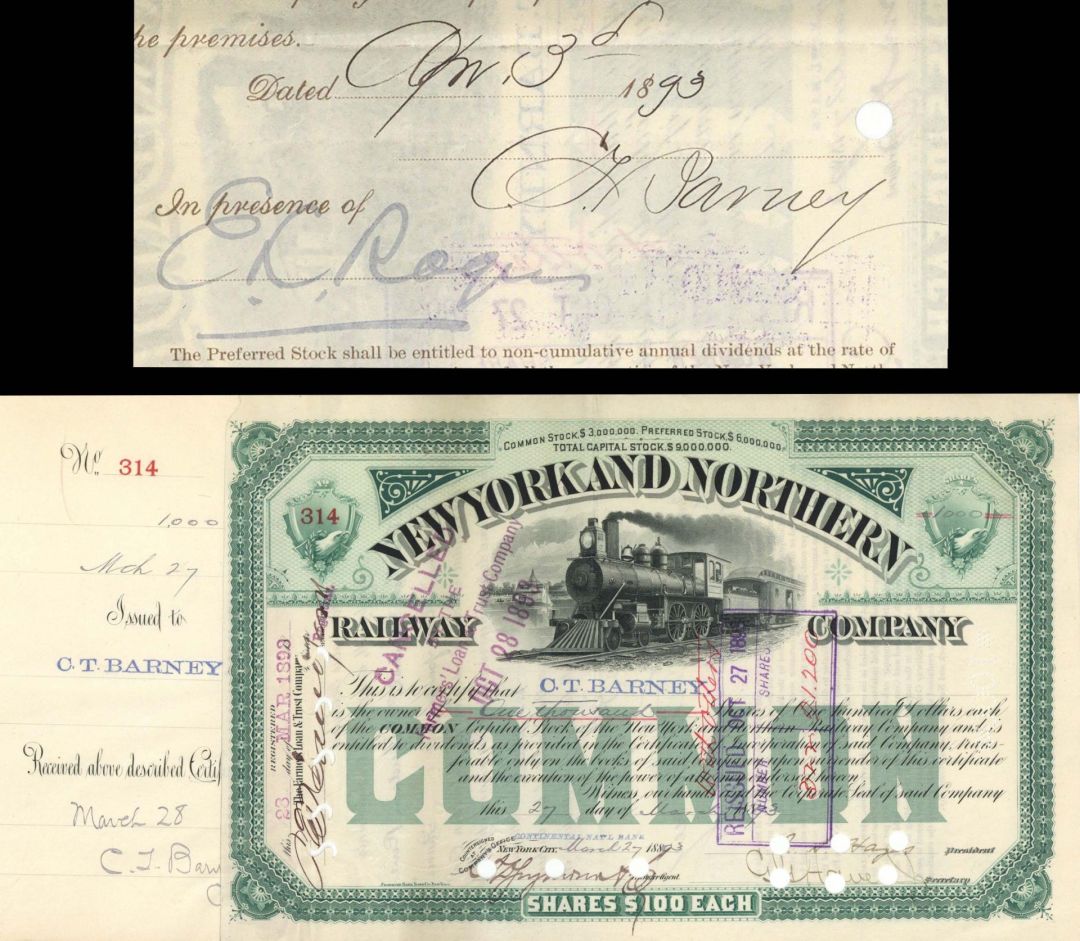 he premises.
Dated Apr. 3d 1893
C T Barney
In presence of
E. L. Rogers
The Preferred Stock shall be entitled to non-cumulative annual dividends at the rate of
No. 314
1,000
Mch 27
Issued to
C. T. BARNEY
Received above described Certif
March 28
C. T. Barn
COMMON STOCK, $ 3,000,000. PREFERRED STOCK, $ 6,000,000.
TOTAL CAPITAL STOCK, $ 9,000,000.
314
1000
NEW YORK AND NORTHERN
RAILWAY COMPANY
CANCELLED
AT THE
Farmers' Loan & Trust Company
OCT 28 1893
REGISTERED
this 28 day of MAR 1893
The Farmers Loan & Trust Company
Registrar.
This is to certify that C. T. BARNEY
is the owner of One thousand Shares of One Hundred Dollars each
of the COMMON Capital Stock of the New York and Northern Railway Company and is
entitled to dividends as provided in the Certificate of Incorporation of said Company, trans-
ferable only on the books of said Company upon surrender of this certificate
and the execution of the power of attorney endorsed hereon.
Witness, our hands and the Corporate Seal of said Company
this 27 day of March 1893
COMMON
REISSUED OCT 27 1893
NUMBER SHARES
COUNTERSIGNED
AT
COMPANY'S OFFICE
CONTINENTAL NAT'L BANK
NEW YORK CITY, March 27 1893
Hayes President
Secretary
SHARES $ 100 EACH